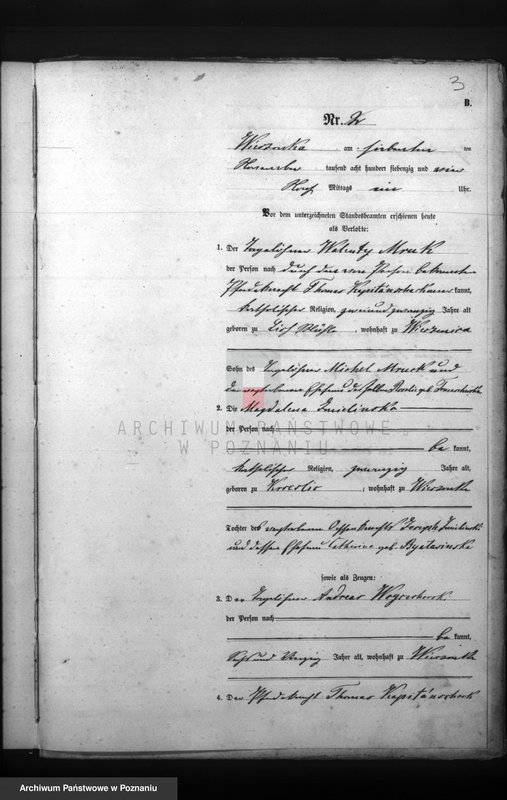 3
B.
Nr. 2
Wierzonka am siebenten ten
November tausend acht hundert siebenzig und vier
Nach Mittags ein Uhr.
Vor dem unterzeichneten Standesbeamten erschienen heute
als Verlobte:
1. Der Tagelöhner Walenty Mruk
der Person nach durch den
Pferdeknecht Thomas kannt,
katholischer Religion, zweiundzwanzig Jahre alt
geboren zu , wohnhaft zu Wierzonka
Sohn des Tagelöhner Michel Mruk und
der verstorbenen Ehefrau desselben geb.
2. Die Magdalena Zmielinska
der Person nach
be kannt,
katholischer Religion, zwanzig Jahre alt,
geboren zu , wohnhaft zu Wierzonka
Tochter des verstorbenen Ochsenknechts Joseph
und dessen Ehefrau Catharina geb.
sowie als Zeugen:
3. Der Tagelöhner Andreas
der Person nach
be kannt,
sechs und vierzig Jahre alt, wohnhaft zu Wierzonka
4. Der Pferdeknecht Thomas
ARCHIWUM PAŃSTWOWE
W POZNANIU
Archiwum Państwowe w Poznaniu